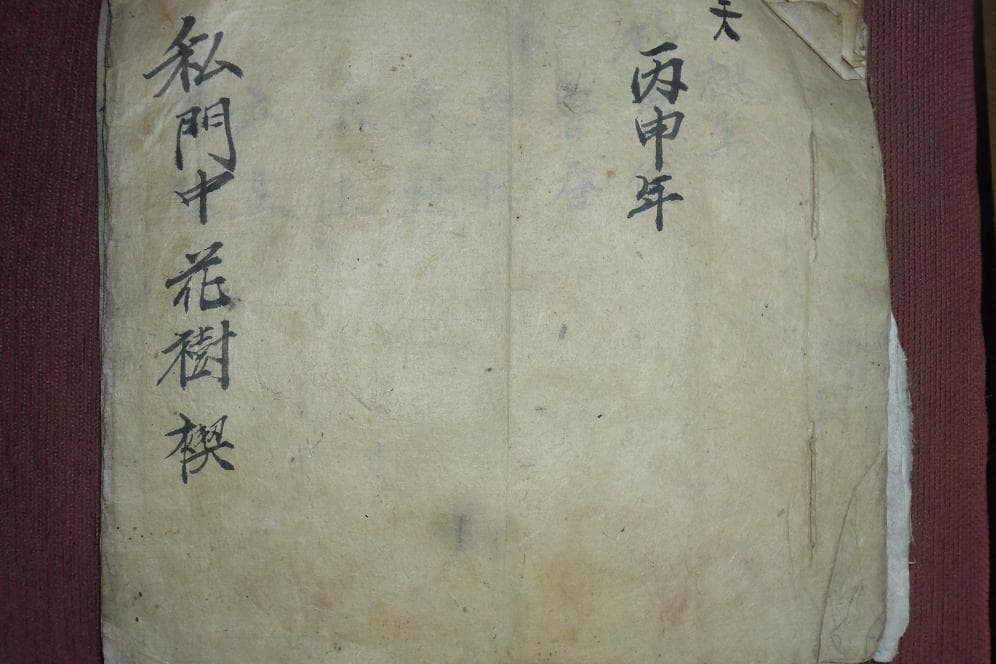 天
丙申年
私門中花樹楔